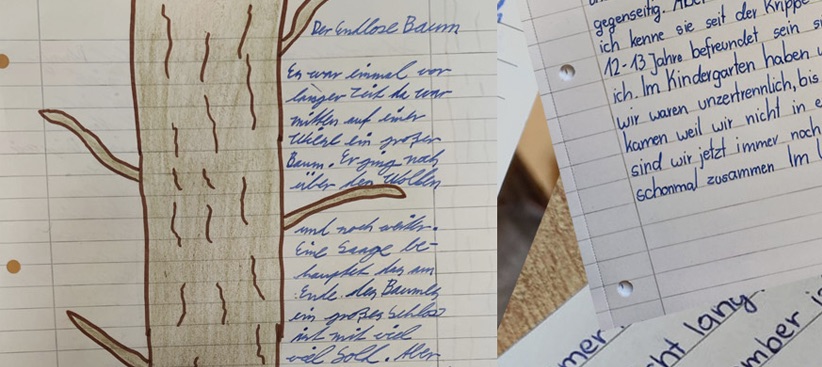 Der Endlose Baum
Es war einmal vor
langer Zeit da war
mitten auf einer
Wiese ein großer
Baum. Er ging noch
über den Wolken
und noch weiter.
Eine Saage be-
hauptet das am
Ende des Baumes
ein großes Schloss
ist mit viel
viel Gold. Aber
gegenseitig. Aber
ich kenne sie seit der Krippe
12-13 Jahre befreundet sein
ich. Im Kindergarten haben
wir waren unzertrennlich, bis
kamen weil wir nicht in
sind wir jetzt immer noch
schonmal zusammen Im
mer
cht lang
mber